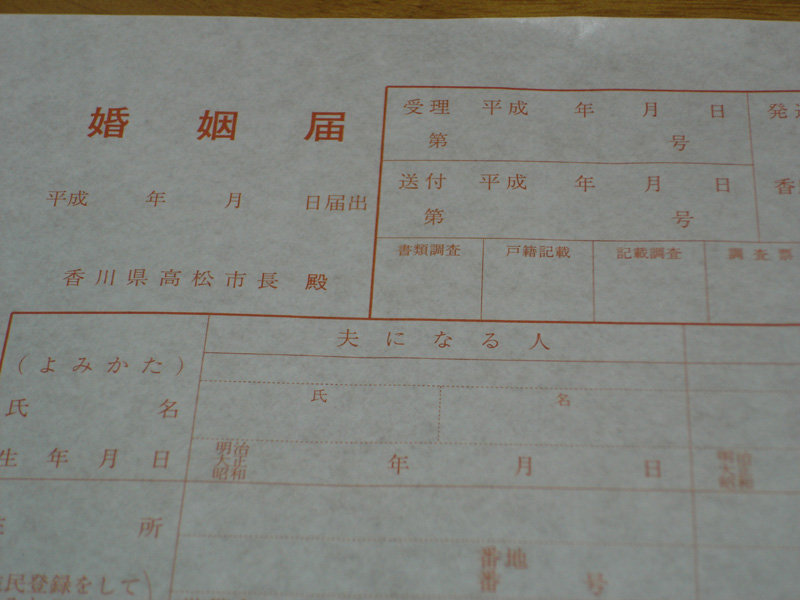 婚姻届
平成 年 月 日届出
香川県高松市長 殿
受理 平成 年 月 日
第 号
送付 平成 年 月 日
第 号
発送
香
書類調査 戸籍記載 記載調査 調査票
夫になる人
(よみかた)
氏名
氏 名
生年月日
明治
大正
昭和
年 月 日
明治
大正
昭和
所
番地
番 号
民登録をして